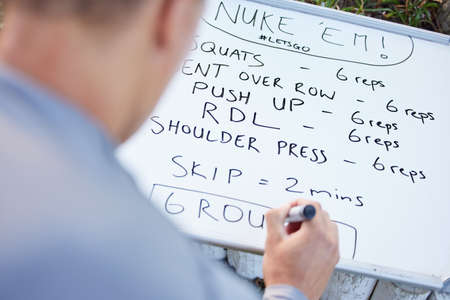 NUKE 'EM!
#LETSGO
SQUATS - 6 reps
ENT OVER ROW - 6 reps
PUSH UP - 6 reps
RDL - 6 reps
SHOULDER PRESS - 6 reps
SKIP = 2 mins
6 ROU